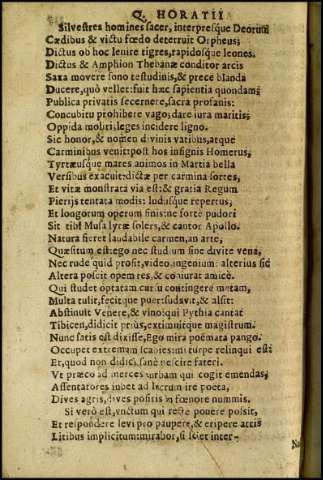 Q. HORATII
Silvestres homines sacer, interpresque Deorum
Cædibus & victu fœdo deterruit Orpheus;
Dictus ob hoc lenire tigres, rapidosque leones.
Dictus & Amphion Thebanæ conditor arcis
Saxa movere sono testudinis, & prece blanda
Ducere, quò vellet: fuit hæc sapientia quondam;
Publica privatis secernere, sacra profanis:
Concubitu prohibere vago; dare iura maritis;
Oppida moliri, leges incidere ligno.
Sic honor, & nomen divinis vatibus, atque
Carminibus venit: post hos insignis Homerus,
Tyrtæusque mares animos in Martia bella
Versibus exacuit: dictæ per carmina sortes,
Et vitæ monstrata via est: & gratia Regum
Pierijs tentata modis: ludusque repertus,
Et longorum operum finis: ne forte pudori
Sit tibi Musa lyræ solers, & cantor Apollo.
Natura fieret laudabile carmen, an arte,
Quæsitum est: ego nec studium sine divite vena,
Nec rude quid prosit, video, ingenium: alterius sic
Altera poscit opem res, & coniurat amicè.
Qui studet optatam cursu contingere metam,
Multa tulit, fecitque puer: sudavit, & alsit:
Abstinuit Venere, & vino: qui Pythia cantat
Tibicen, didicit prius, extimuitque magistrum.
Nunc satis est dixisse, Ego mira poëmata pango.
Occupet extremum scabies: mi turpe relinqui est:
Et, quod non didici, sanè nescire fateri.
Vt præco ad merces turbam qui cogit emendas;
Assentatores iubet ad lucrum ire poëta,
Dives agris, dives positis in fœnore nummis.
Si verò est, vnctum qui rectè ponere possit,
Et respondere levi pro paupere, & eripere atris
Litibus implicitum: mirabor, si sciet inter-